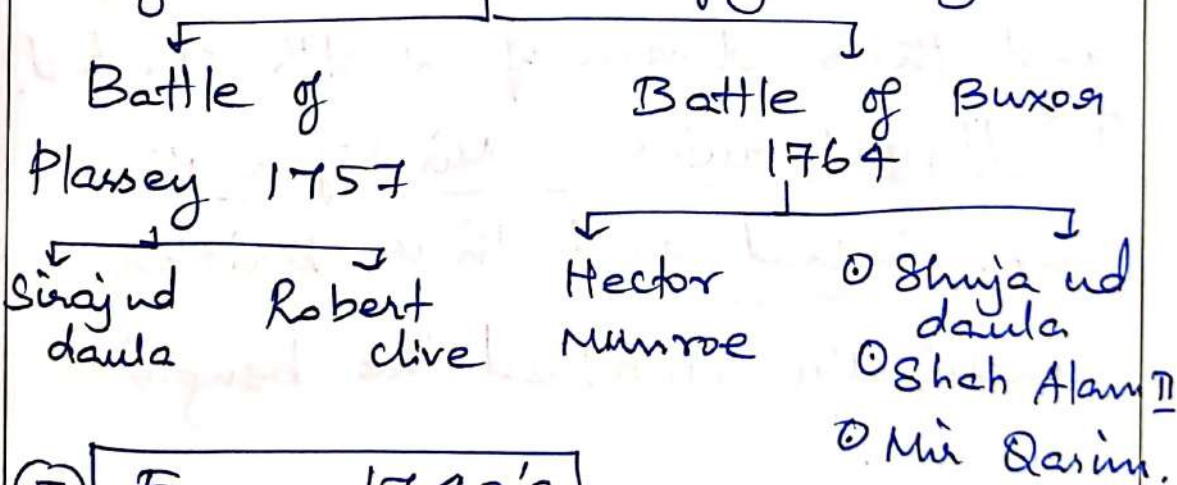 Battle of
Plassey 1757
Siraj ud
daula
Robert
clive
Battle of Buxor
1764
Hector
Munroe
⊙ Shuja ud
daula
⊙ Shah Alam II
⊙ Mir Qasim.